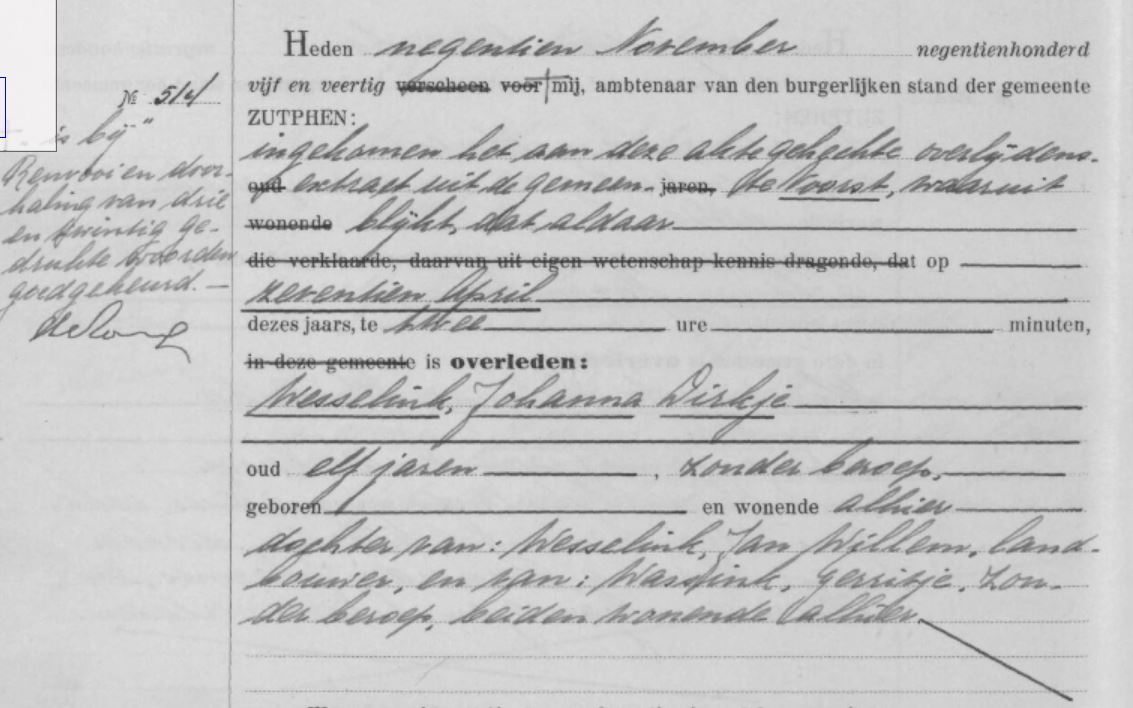 Heden negentien November negentienhonderd
vijf en veertig verscheen voor mij, ambtenaar van den burgerlijken stand der gemeente
ZUTPHEN:
ingekomen het aan deze akte gehechte overlijdens-
oud extract uit de gemeen- jaren, te Voorst, waaruit
wonende blijkt, dat aldaar
die verklaarde, daarvan uit eigen wetenschap kennis dragende, dat op
zeventien April
dezes jaars, te twee ure minuten,
in deze gemeente is overleden:
Wesselink, Johanna Dirkje
oud elf jaren, zonder beroep,
geboren en wonende alhier
dochter van: Wesselink, Jan Willem, land-
bouwer, en van: Wassink, Gerritje, zon-
der beroep, beiden wonende alhier.
№ 514
"is bij"
Renvooi en door-
haling van drie
en twintig ge-
drukte woorden
goedgekeurd.